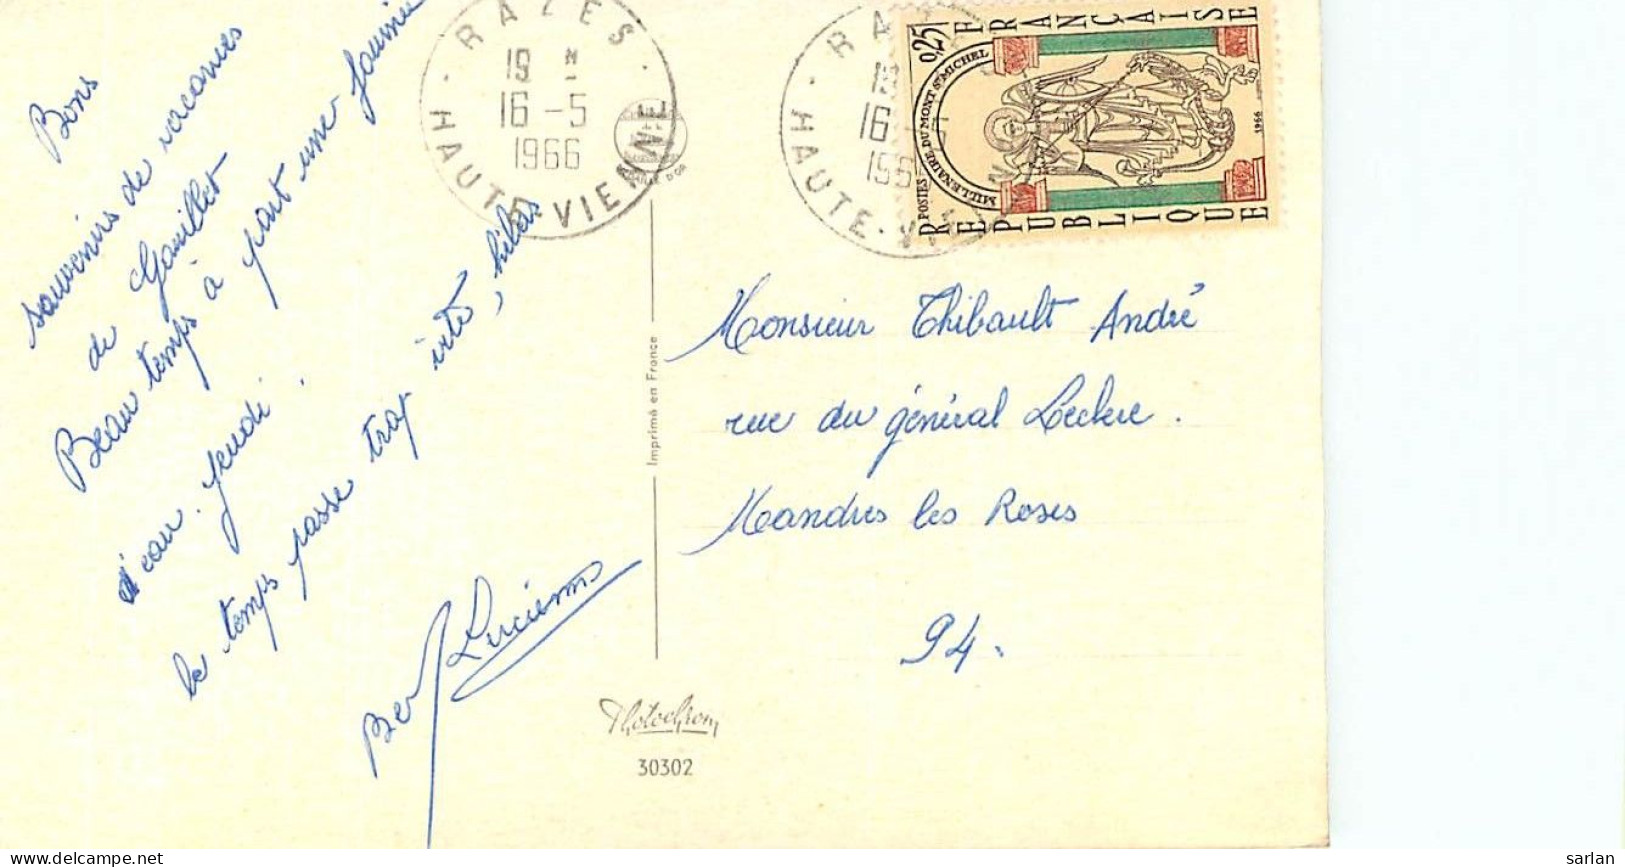 Bons
souvenirs de vacances
de Gouillet
Beau temps à part une journée
d'eau. Jeudi.
le temps passe trop vite, hélas
Lucienne
RAZES
19 H
16 - 5
1966
HAUTE VIENNE
RAZES
16
HAUTE - VIENNE
0,25 F
RÉPUBLIQUE FRANÇAISE
POSTES MILLENAIRE DU MONT ST MICHEL
1966
Imprimé en France
Monsieur Thibault André
rue du général Leclerc.
Mandres les Roses
94.
Photochrom
30302
sarlan